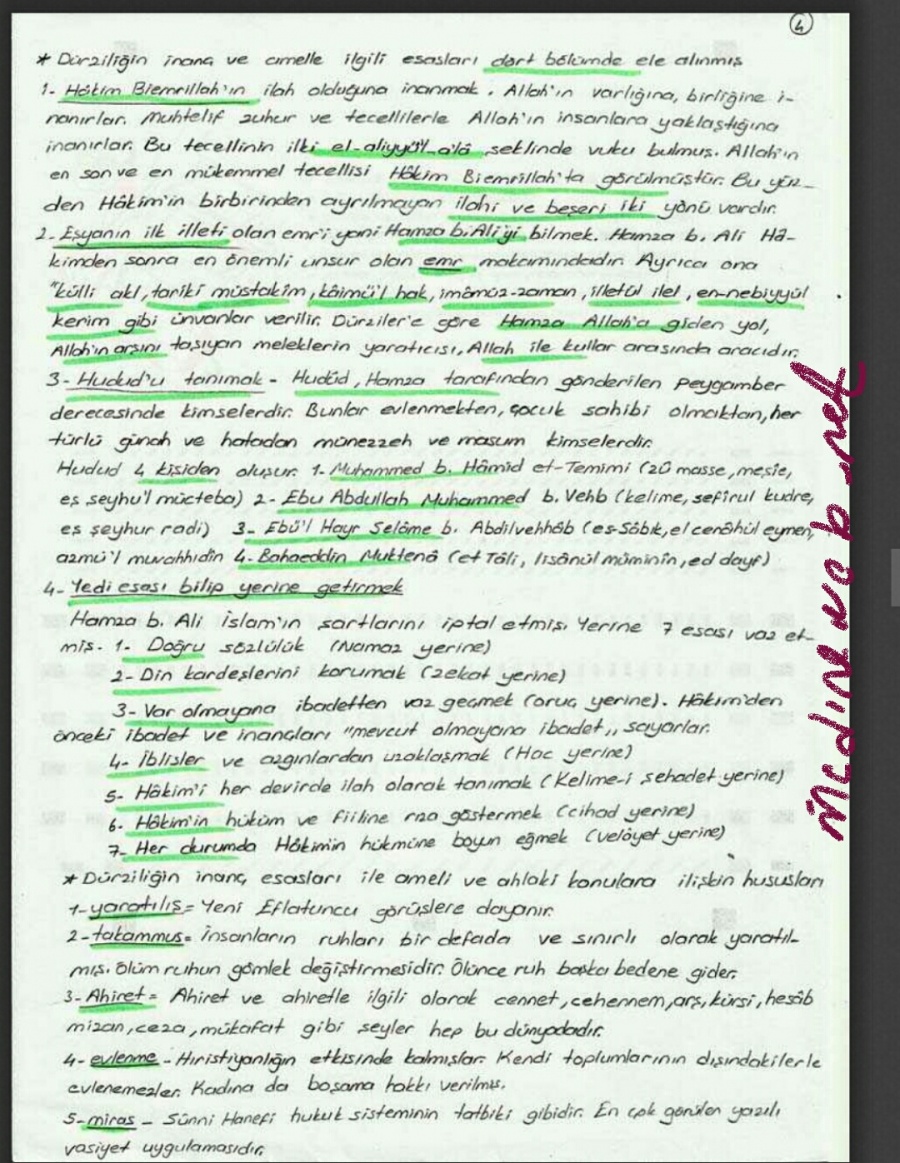 4
* Dürziliğin inanç ve amelle ilgili esasları dört bölümde ele alınmış
1- Hâkim Biemrillah'ın ilah olduğuna inanmak. Allah'ın varlığına, birliğine i-
nanırlar. Muhtelif zuhur ve tecellilerle Allah'ın insanlara yaklaştığına
inanırlar. Bu tecellinin ilki el-aliyyü'l-a'lâ şeklinde vuku bulmuş. Allah'ın
en son ve en mükemmel tecellisi Hâkim Biemrillah'ta görülmüştür. Bu yüz-
den Hâkim'in birbirinden ayrılmayan ilahi ve beşeri iki yönü vardır.
2- Eşyanın ilk illeti olan emr'i yani Hamza b. Ali'yi bilmek. Hamza b. Ali Hâ-
kimden sonra en önemli unsur olan emr makamındadır. Ayrıca ona
"külli akl, tariki müstakîm, kâimü'l hak, imâmüz-zaman, illetül ilel, en-nebiyyül
kerim gibi ünvanlar verilir. Dürziler'e göre Hamza Allah'a giden yol,
Allah'ın arşını taşıyan meleklerin yaratıcısı, Allah ile kullar arasında aracıdır.
3- Hudud'u tanımak - Hudûd, Hamza tarafından gönderilen Peygamber
derecesinde kimselerdir. Bunlar evlenmekten, çocuk sahibi olmaktan, her
türlü günah ve hatadan münezzeh ve masum kimselerdir.
Hudud 4 kişiden oluşur. 1- Muhammed b. Hâmid et-Temimi (zû masse, meşie,
eş şeyhu'l mücteba) 2- Ebu Abdullah Muhammed b. Vehb (kelime, sefirul kudre,
eş şeyhur radi) 3- Ebü'l Hayr Selâme b. Abdilvehhâb (es-Sâbık, el cenâhül eymen,
azmü'l muvahhidin 4- Bahaeddin Muktenâ (et Tâli, lisânül müminîn, ed dayf)
4- Yedi esası bilip yerine getirmek
Hamza b. Ali İslam'ın şartlarını iptal etmiş. Yerine 7 esası vaz et-
miş. 1- Doğru sözlülük (Namaz yerine)
2- Din kardeşlerini korumak (zekat yerine)
3- Var olmayana ibadetten vaz geçmek (oruç yerine). Hâkim'den
önceki ibadet ve inançları "mevcut olmayana ibadet,, sayarlar.
4- İblisler ve azgınlardan uzaklaşmak (Hac yerine)
5- Hâkim'i her devirde ilah olarak tanımak (Kelime-i şehadet yerine)
6- Hâkim'in hüküm ve fiiline rıza göstermek (cihad yerine)
7- Her durumda Hâkimin hükmüne boyun eğmek (velâyet yerine)
* Dürziliğin inanç esasları ile ameli ve ahlaki konulara ilişkin hususları
1- yaratılış = Yeni Eflatuncu görüşlere dayanır.
2- takammus = İnsanların ruhları bir defada ve sınırlı olarak yaratıl-
mış. Ölüm ruhun gömlek değiştirmesidir. Ölünce ruh başka bedene gider.
3- Ahiret = Ahiret ve ahiretle ilgili olarak cennet, cehennem, arş, kürsi, hesâb
mizan, ceza, mükafat gibi şeyler hep bu dünyadadır.
4- evlenme - Hıristiyanlığın etkisinde kalmışlar. Kendi toplumlarının dışındakilerle
evlenemezler. Kadına da boşama hakkı verilmiş.
5- miras - Sünni Hanefi hukuk sisteminin tatbiki gibidir. En çok görülen yazılı
vasiyet uygulamasıdır.